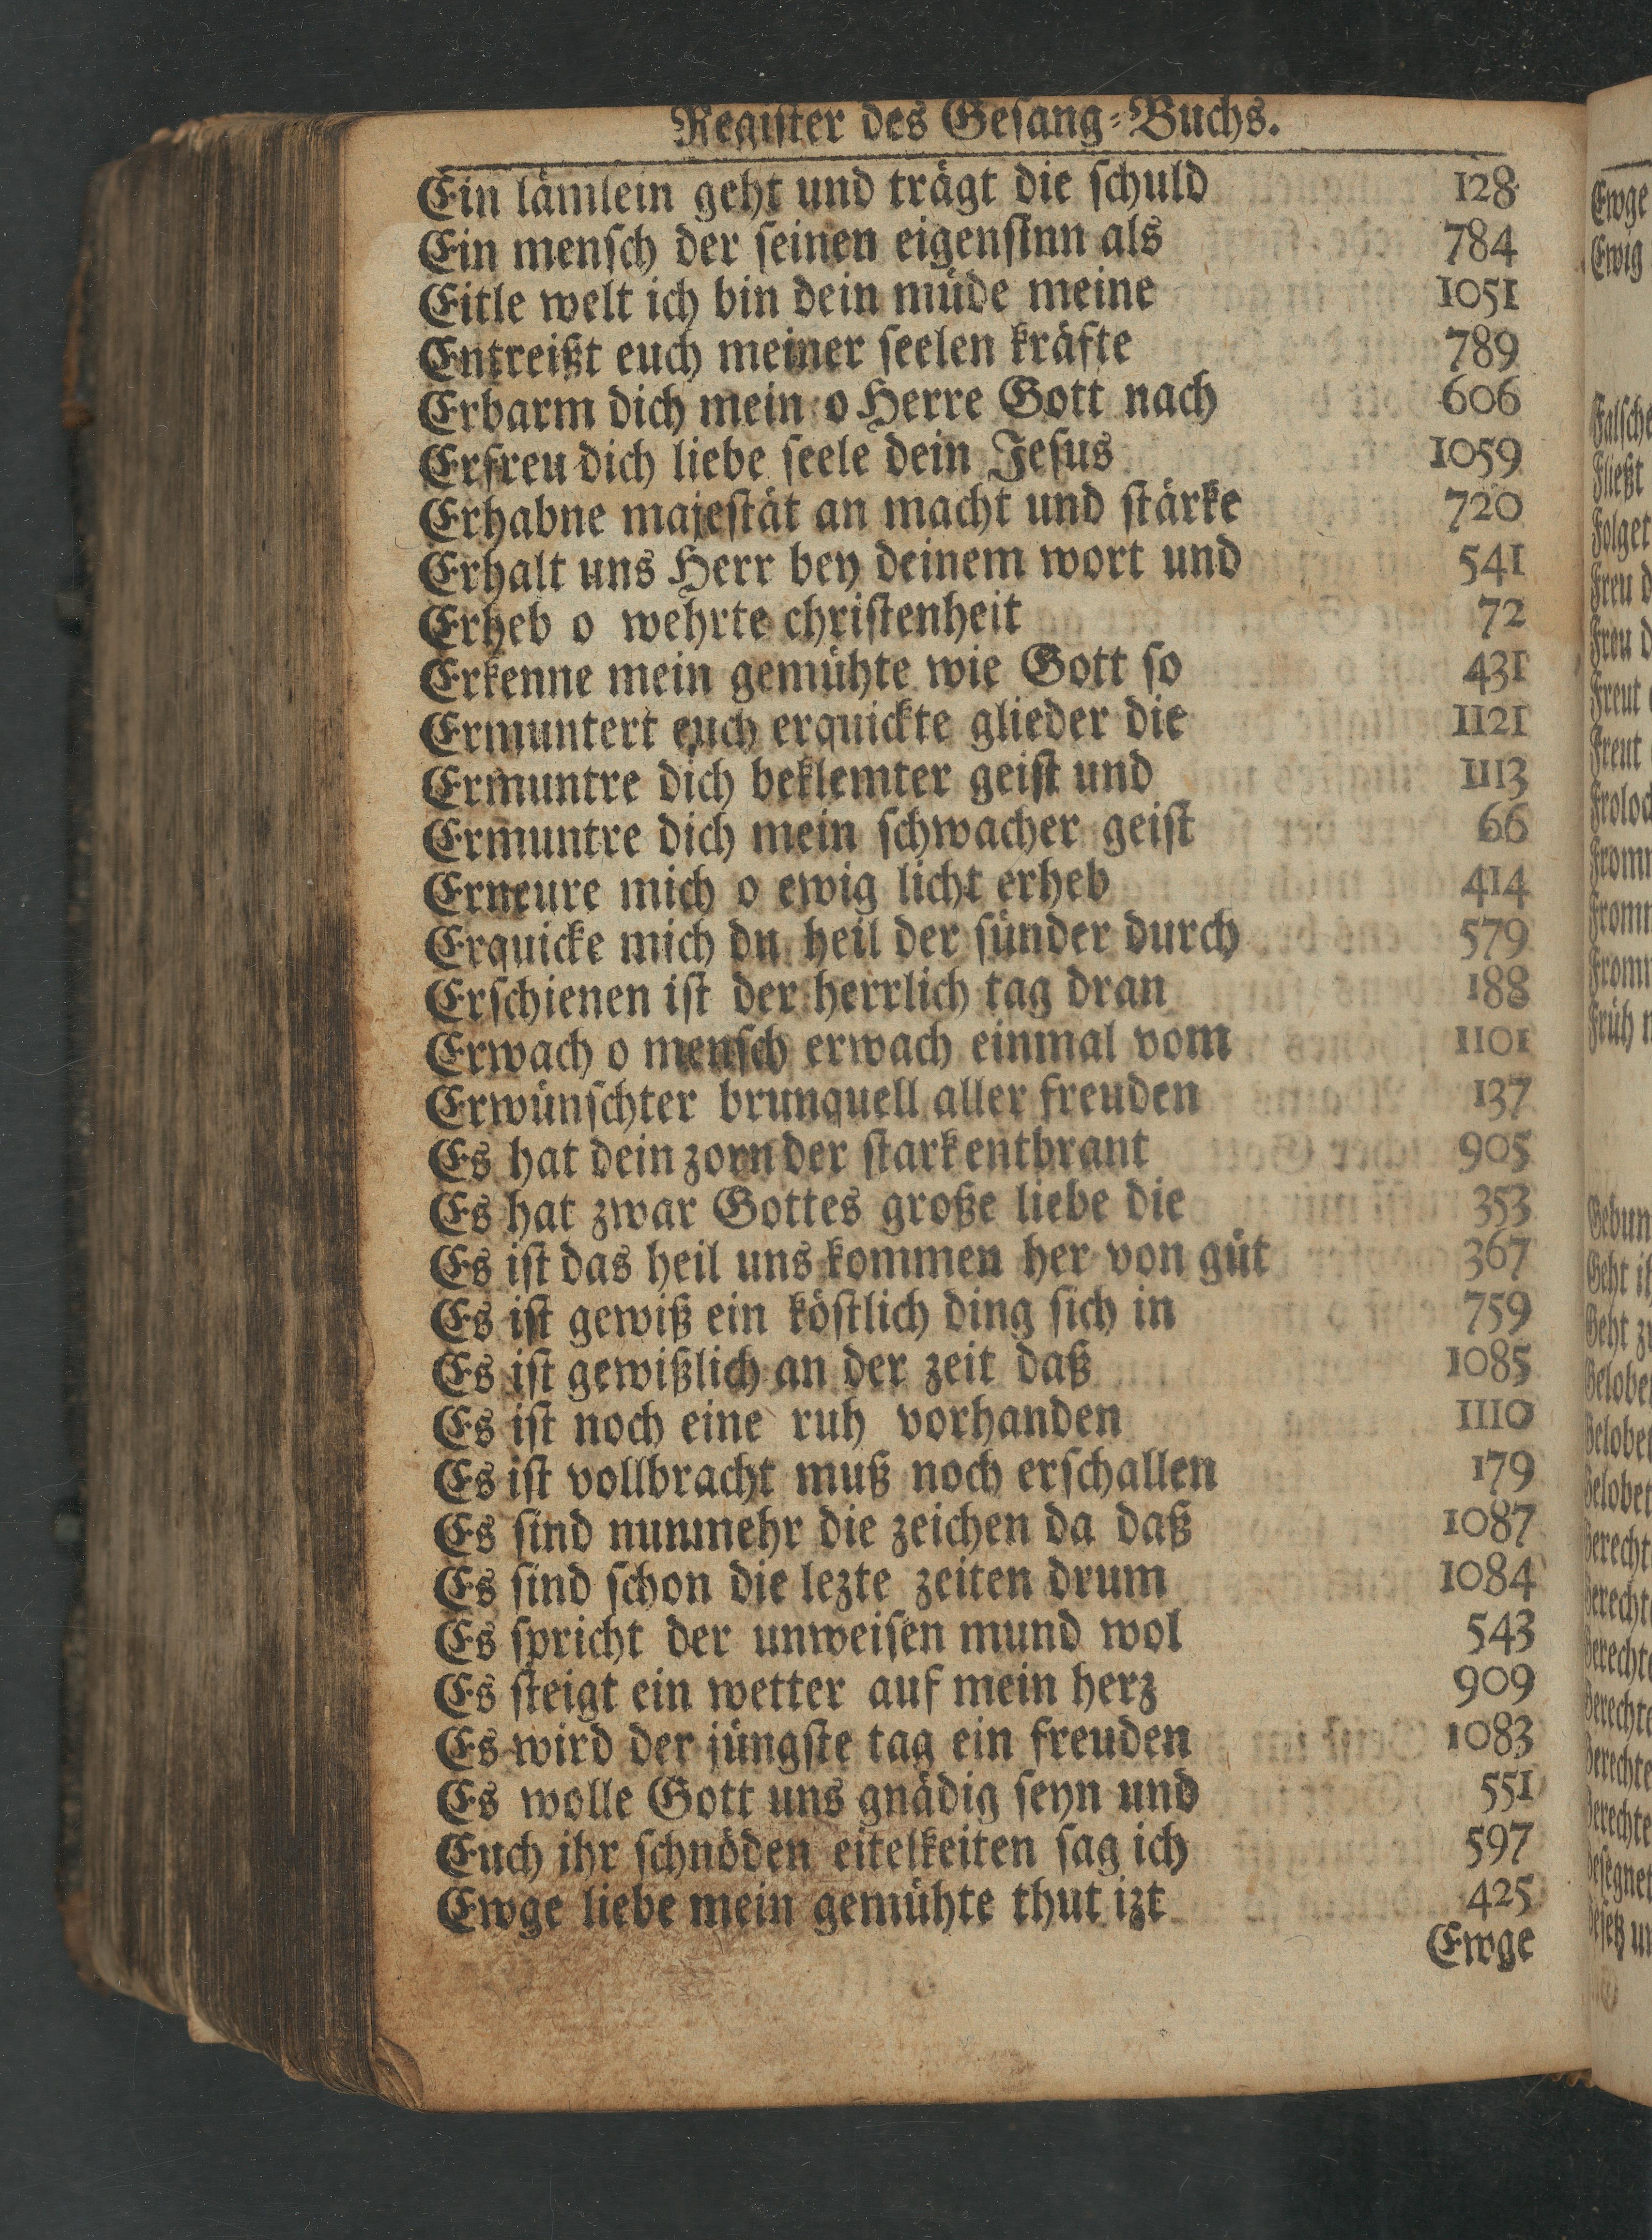 Register des Gesang-Buchs.
Ein lämlein geht und trägt die schuld 128
Ein mensch der seinen eigensinn als 784
Eitle welt ich bin dein müde meine 1051
Entreißt euch meiner seelen kräfte 789
Erbarm dich mein o Herre Gott nach 606
Erfreu dich liebe seele dein Jesus 1059
Erhabne majestät an macht und stärke 720
Erhalt uns Herr bey deinem wort und 541
Erheb o wehrte christenheit 72
Erkenne mein gemühte wie Gott so 431
Ermuntert euch erquickte glieder die 1121
Ermuntre dich beklemter geist und 1113
Ermuntre dich mein schwacher geist 66
Erneure mich o ewig licht erheb 414
Erquicke mich du heil der sünder durch 579
Erschienen ist der herrlich tag dran 188
Erwach o mensch erwach einmal vom 1101
Erwünschter brunquell aller freuden 137
Es hat dein zorn der stark entbrant 905
Es hat zwar Gottes große liebe die 353
Es ist das heil uns kommen her von güt 367
Es ist gewiß ein köstlich ding sich in 759
Es ist gewißlich an der zeit daß 1085
Es ist noch eine ruh vorhanden 1110
Es ist vollbracht muß noch erschallen 179
Es sind nunmehr die zeichen da daß 1087
Es sind schon die lezte zeiten drum 1084
Es spricht der unweisen mund wol 543
Es steigt ein wetter auf mein herz 909
Es wird der jüngste tag ein freuden 1083
Es wolle Gott uns gnädig seyn und 551
Euch ihr schnöden eitelkeiten sag ich 597
Ewge liebe mein gemühte thut izt 425
Ewge
Ewge
Ewig
Fließt
Folget
Freu
Freu
Freut
Freut
Früh
Geht
Geht